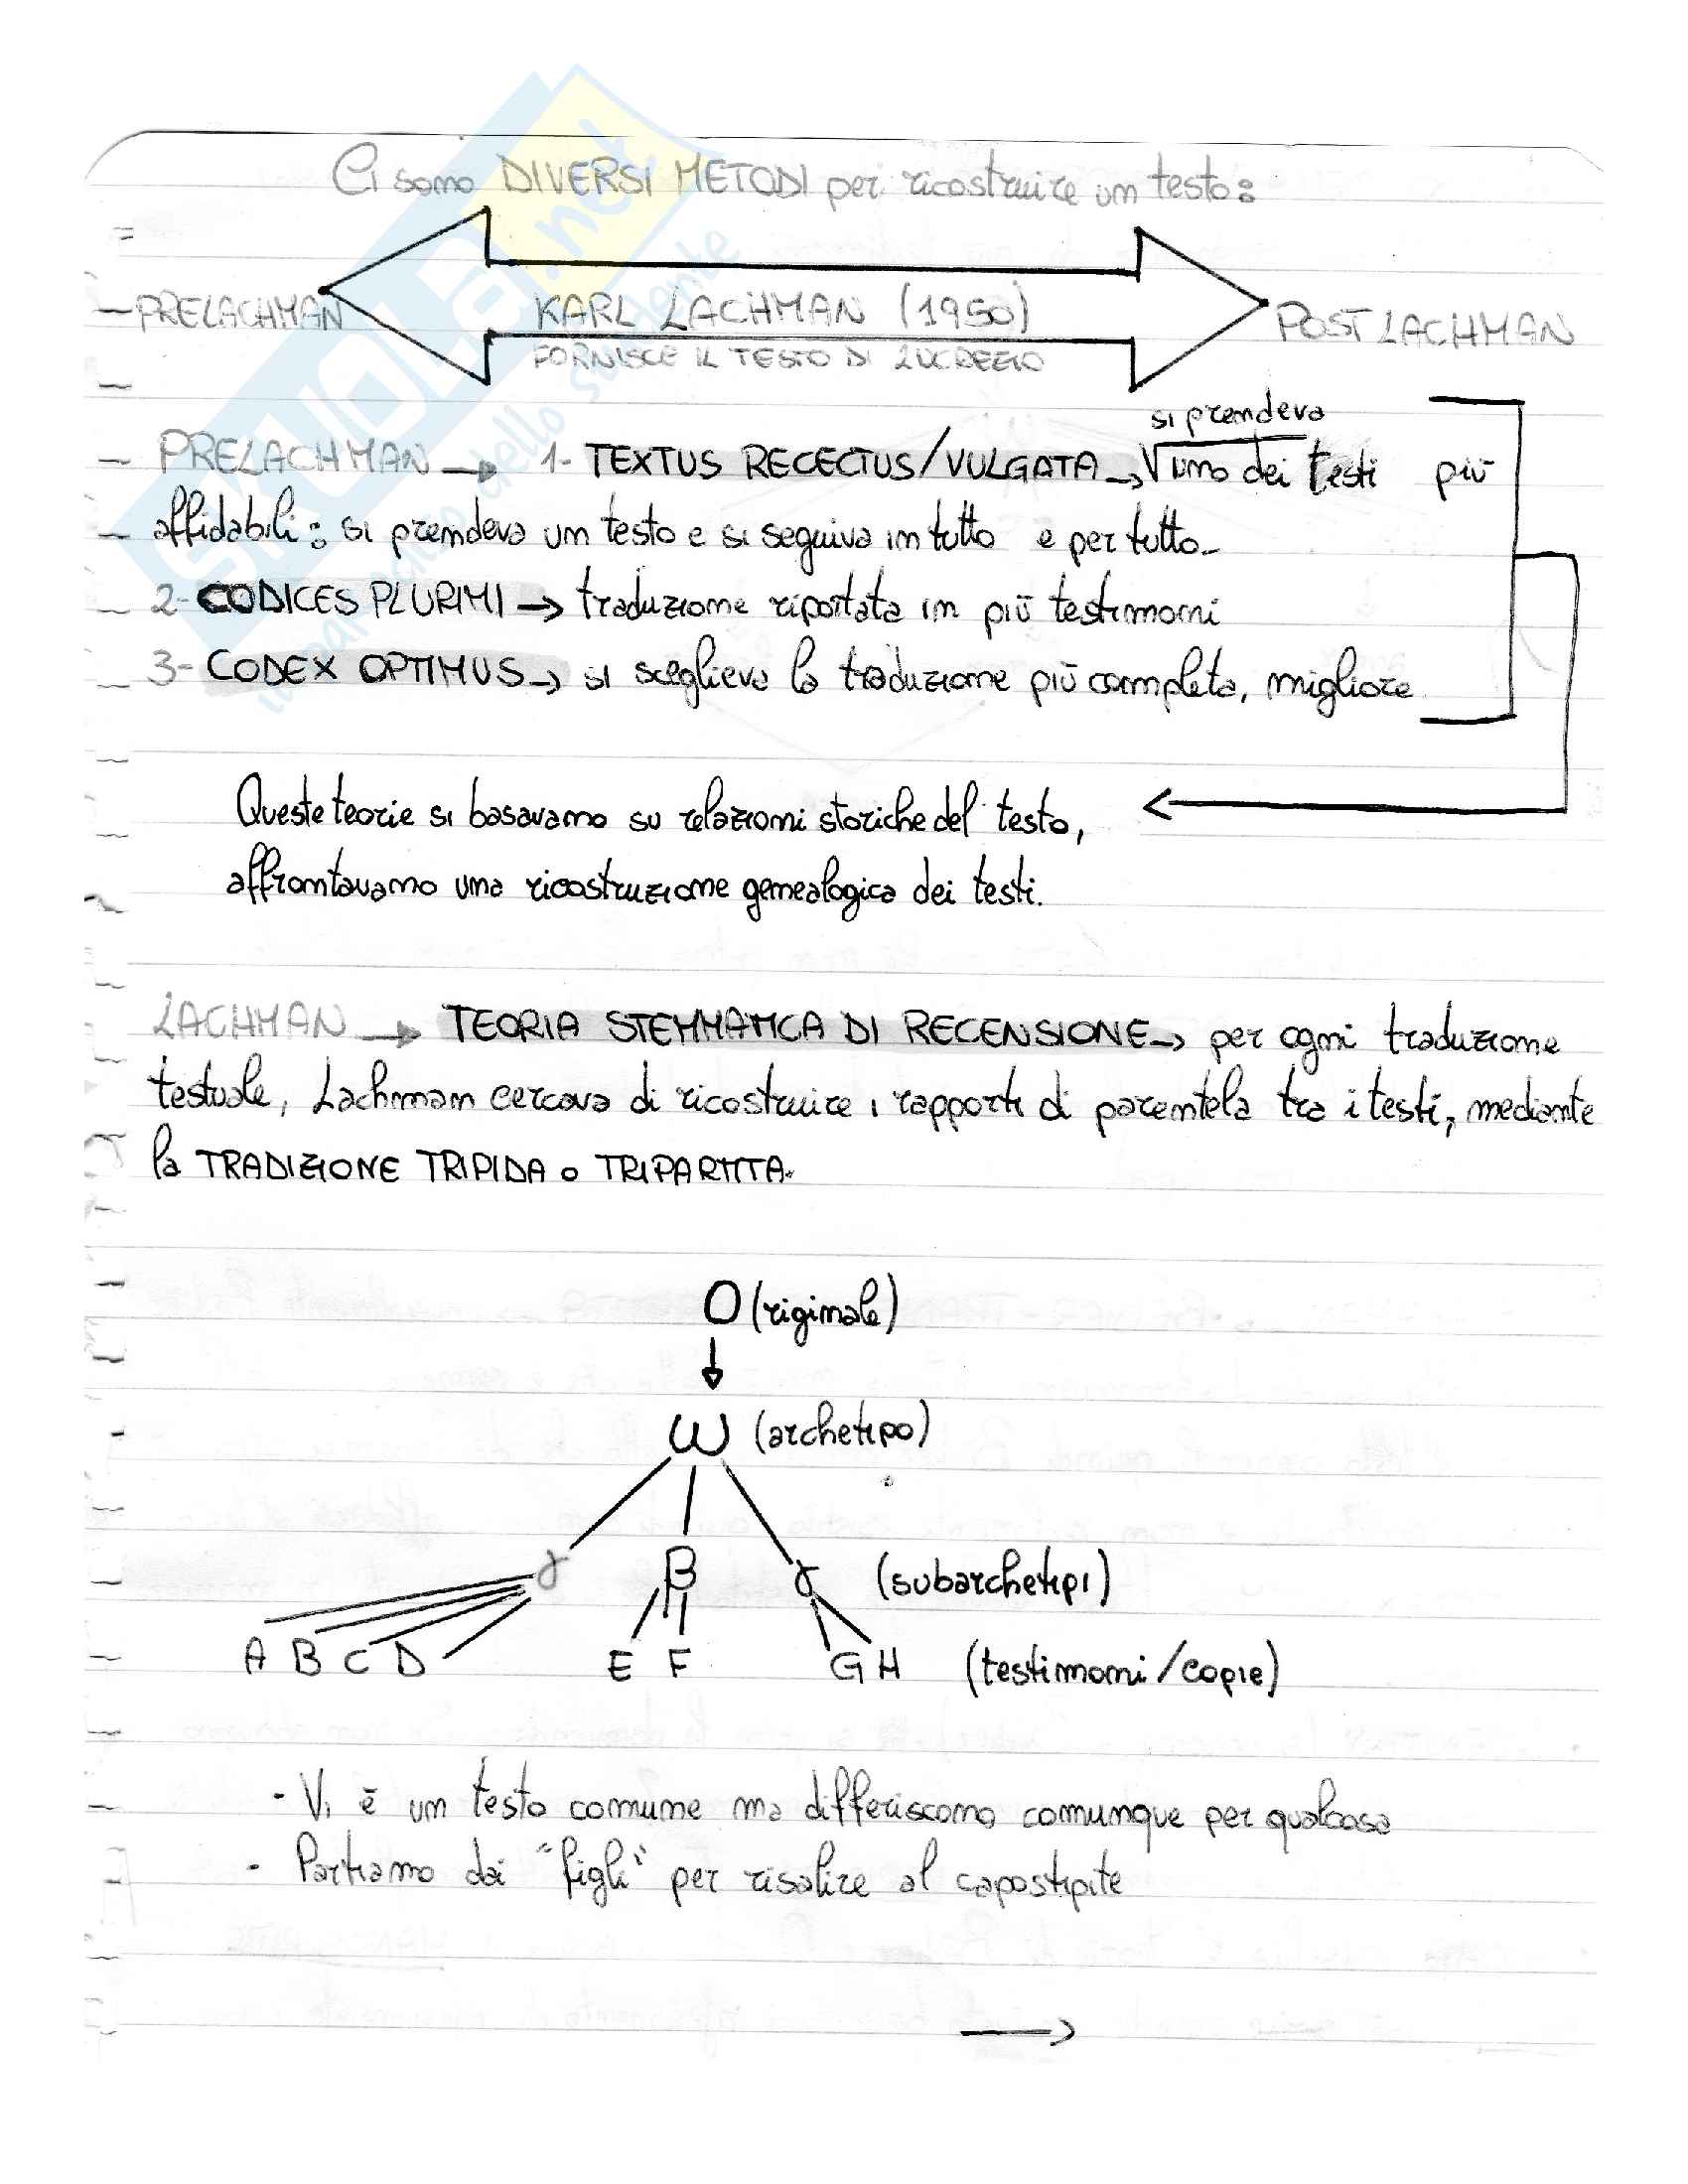 Ci sono DIVERSI METODI per ricostruire un testo:
PRELACHMAN
KARL LACHMAN (1950)
POST LACHMAN
FORNISCE IL TESTO DI LUCREZIO
si prendeva
PRELACHMAN → 1- TEXTUS RECECTUS/VULGATA → uno dei testi più
affidabili: si prendeva un testo e si seguiva in tutto e per tutto-
2- CODICES PLURIMI → traduzione riportata in più testimoni
3- CODEX OPTIMUS → si sceglieva la traduzione più completa, migliore
Queste teorie si basavano su relazioni storiche del testo,
affrontavano una ricostruzione genealogica dei testi.
LACHMAN → TEORIA STEMMATICA DI RECENSIONE → per ogni traduzione
testuale, Lachman cercava di ricostruire i rapporti di parentela tra i testi, mediante
la TRADIZIONE TRIPIDA o TRIPARTITA.
O (riginale)
ω (archetipo)
β γ (subarchetipi)
A B C D E F G H (testimoni/copie)
- Vi è un testo comune ma differiscono comunque per qualcosa
- Partiamo dai "figli" per risalire al capostipite
SKUOLA.net